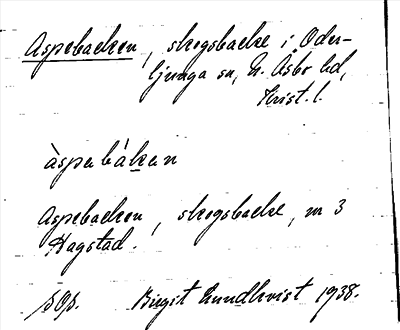 Aspebacken, skogsbacke i Oder-
ljunga sn, N. Åsbo hd,
Krist. l.
àspabákan
Aspebacken, skogsbacke, nr 3
Hagstad.
Birgit Rundkvist 1938.